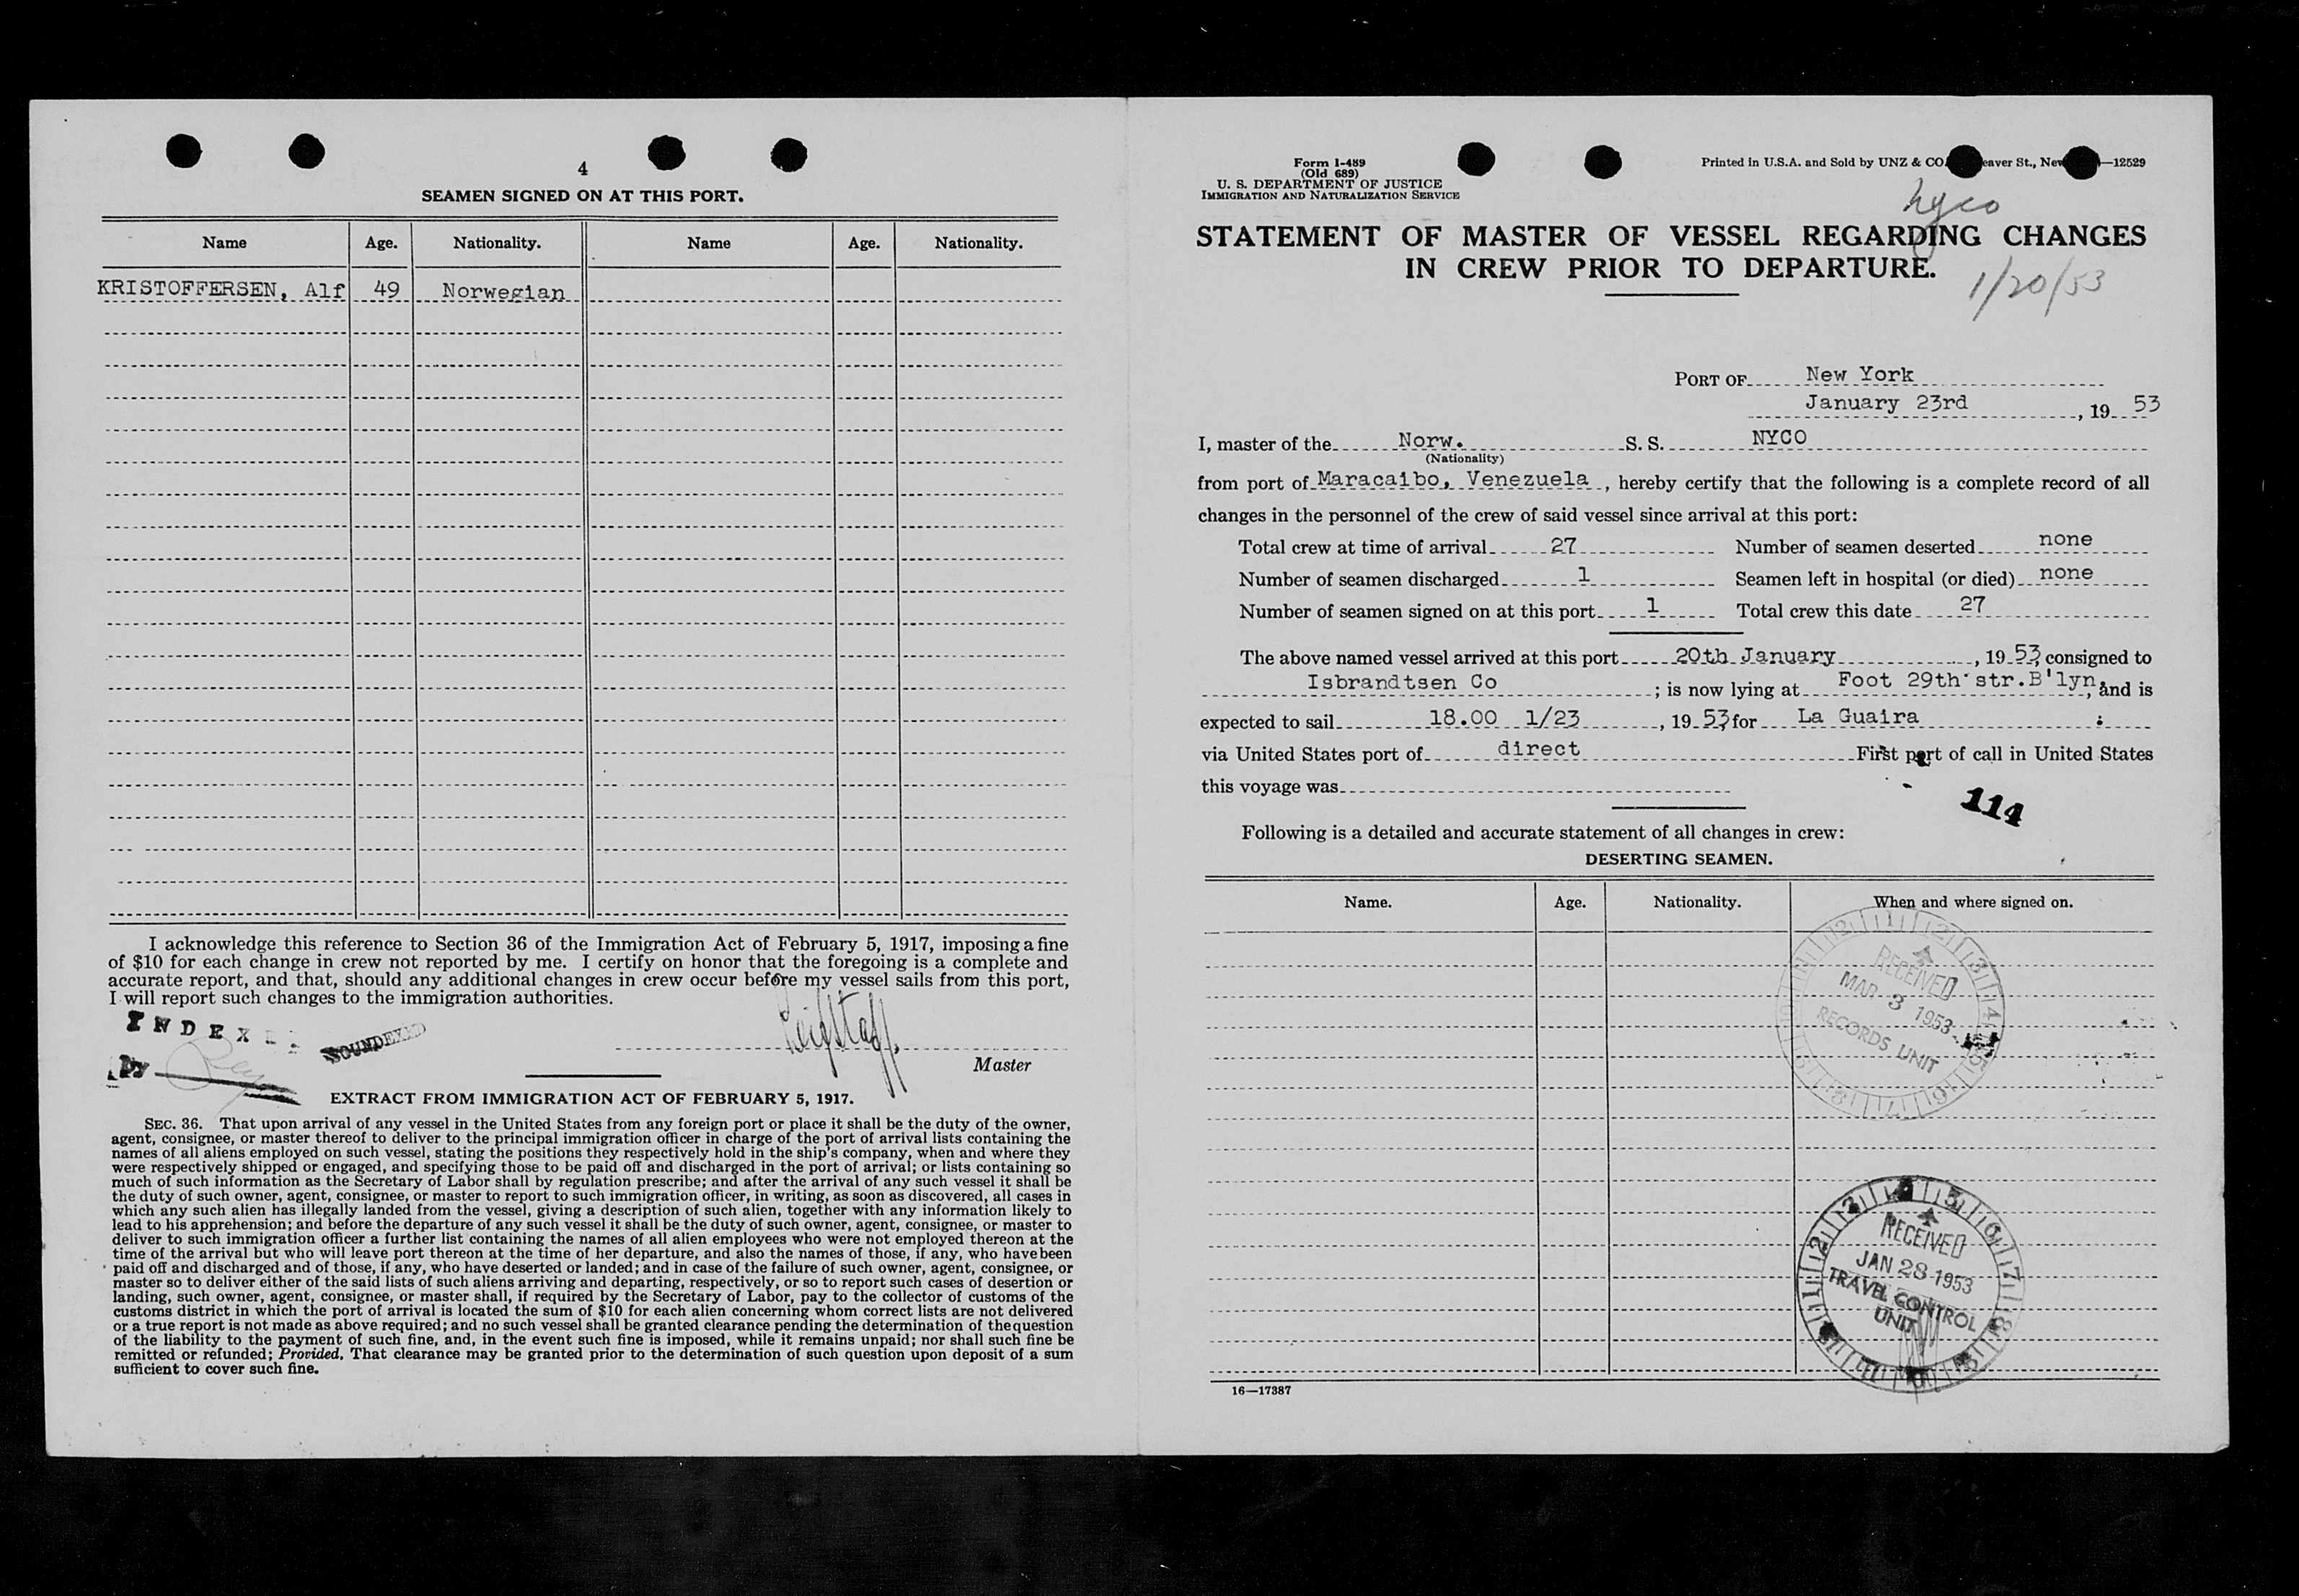 4
SEAMEN SIGNED ON AT THIS PORT.
Name Age. Nationality. Name Age. Nationality.
KRISTOFFERSEN, Alf 49 Norwegian
I acknowledge this reference to Section 36 of the Immigration Act of February 5, 1917, imposing a fine
of $10 for each change in crew not reported by me. I certify on honor that the foregoing is a complete and
accurate report, and that, should any additional changes in crew occur before my vessel sails from this port,
I will report such changes to the immigration authorities.
INDEX
SOUNDEXED
By
Master
EXTRACT FROM IMMIGRATION ACT OF FEBRUARY 5, 1917.
SEC. 36. That upon arrival of any vessel in the United States from any foreign port or place it shall be the duty of the owner,
agent, consignee, or master thereof to deliver to the principal immigration officer in charge of the port of arrival lists containing the
names of all aliens employed on such vessel, stating the positions they respectively hold in the ship's company, when and where they
were respectively shipped or engaged, and specifying those to be paid off and discharged in the port of arrival; or lists containing so
much of such information as the Secretary of Labor shall by regulation prescribe; and after the arrival of any such vessel it shall be
the duty of such owner, agent, consignee, or master to report to such immigration officer, in writing, as soon as discovered, all cases in
which any such alien has illegally landed from the vessel, giving a description of such alien, together with any information likely to
lead to his apprehension; and before the departure of any such vessel it shall be the duty of such owner, agent, consignee, or master to
deliver to such immigration officer a further list containing the names of all alien employees who were not employed thereon at the
time of the arrival but who will leave port thereon at the time of her departure, and also the names of those, if any, who have been
paid off and discharged and of those, if any, who have deserted or landed; and in case of the failure of such owner, agent, consignee, or
master so to deliver either of the said lists of such aliens arriving and departing, respectively, or so to report such cases of desertion or
landing, such owner, agent, consignee, or master shall, if required by the Secretary of Labor, pay to the collector of customs of the
customs district in which the port of arrival is located the sum of $10 for each alien concerning whom correct lists are not delivered
or a true report is not made as above required; and no such vessel shall be granted clearance pending the determination of the question
of the liability to the payment of such fine, and, in the event such fine is imposed, while it remains unpaid; nor shall such fine be
remitted or refunded; Provided, That clearance may be granted prior to the determination of such question upon deposit of a sum
sufficient to cover such fine.
Form I-489
(Old 689)
U. S. DEPARTMENT OF JUSTICE
IMMIGRATION AND NATURALIZATION SERVICE
Printed in U.S.A. and Sold by UNZ & CO. eaver St., New —12529
Nyco
STATEMENT OF MASTER OF VESSEL REGARDING CHANGES
IN CREW PRIOR TO DEPARTURE.
1/20/53
PORT OF New York
January 23rd, 19 53
I, master of the Norw. S. S. NYCO
(Nationality)
from port of Maracaibo, Venezuela, hereby certify that the following is a complete record of all
changes in the personnel of the crew of said vessel since arrival at this port:
Total crew at time of arrival 27 Number of seamen deserted none
Number of seamen discharged 1 Seamen left in hospital (or died) none
Number of seamen signed on at this port 1 Total crew this date 27
The above named vessel arrived at this port 20th January, 19 53, consigned to
Isbrandtsen Co ; is now lying at Foot 29th str. B'lyn, and is
expected to sail 18.00 1/23, 19 53, for La Guaira ;
via United States port of direct First port of call in United States
this voyage was
114
Following is a detailed and accurate statement of all changes in crew:
DESERTING SEAMEN.
Name. Age. Nationality. When and where signed on.
RECEIVED
MAR 3 1953
RECORDS UNIT
RECEIVED
JAN 28 1953
TRAVEL CONTROL
UNIT
16—17387